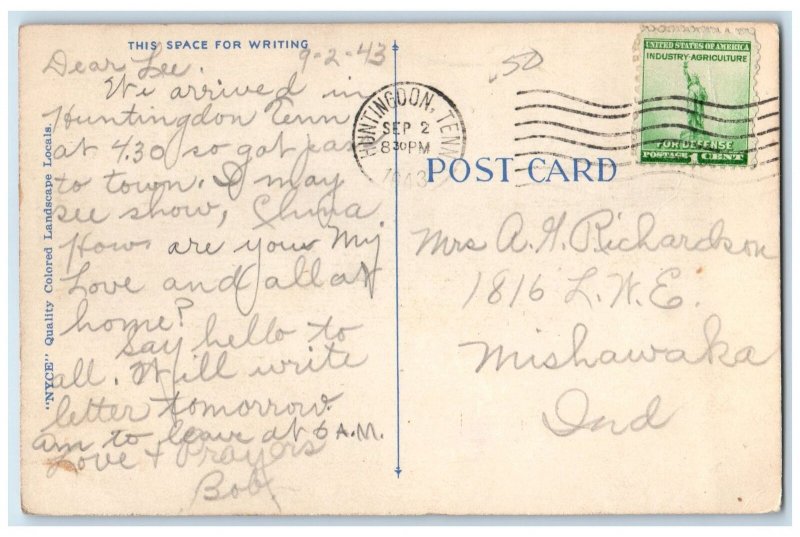 THIS SPACE FOR WRITING
9-2-43
Dear Lee.
We arrived in
Huntingdon Tenn
at 4.30 so got pass
to town. I may
see show, China
Hows are you My
Love and all at
home?
Say hello to
all. Will write
letter tomorrow.
am to leave at 6 A.M.
Love + Prayers
Bob.
"NYCE" Quality Colored Landscape Locals.
.50
HUNTINGDON, TENN
SEP 2
830 PM
1943
UNITED STATES OF AMERICA
INDUSTRY-AGRICULTURE
FOR DEFENSE
POSTAGE 1 CENT
POST CARD
Mrs A. G. Richardson
1816 L.W.E.
Mishawaka
Ind